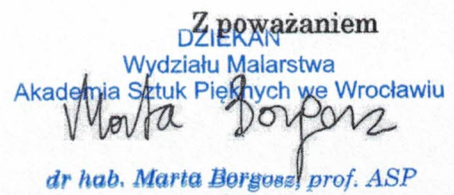 Z poważaniem
DZIEKAN
Wydziału Malarstwa
Akademia Sztuk Pięknych we Wrocławiu
Marta Borgosz
dr hab. Marta Borgosz, prof. ASP